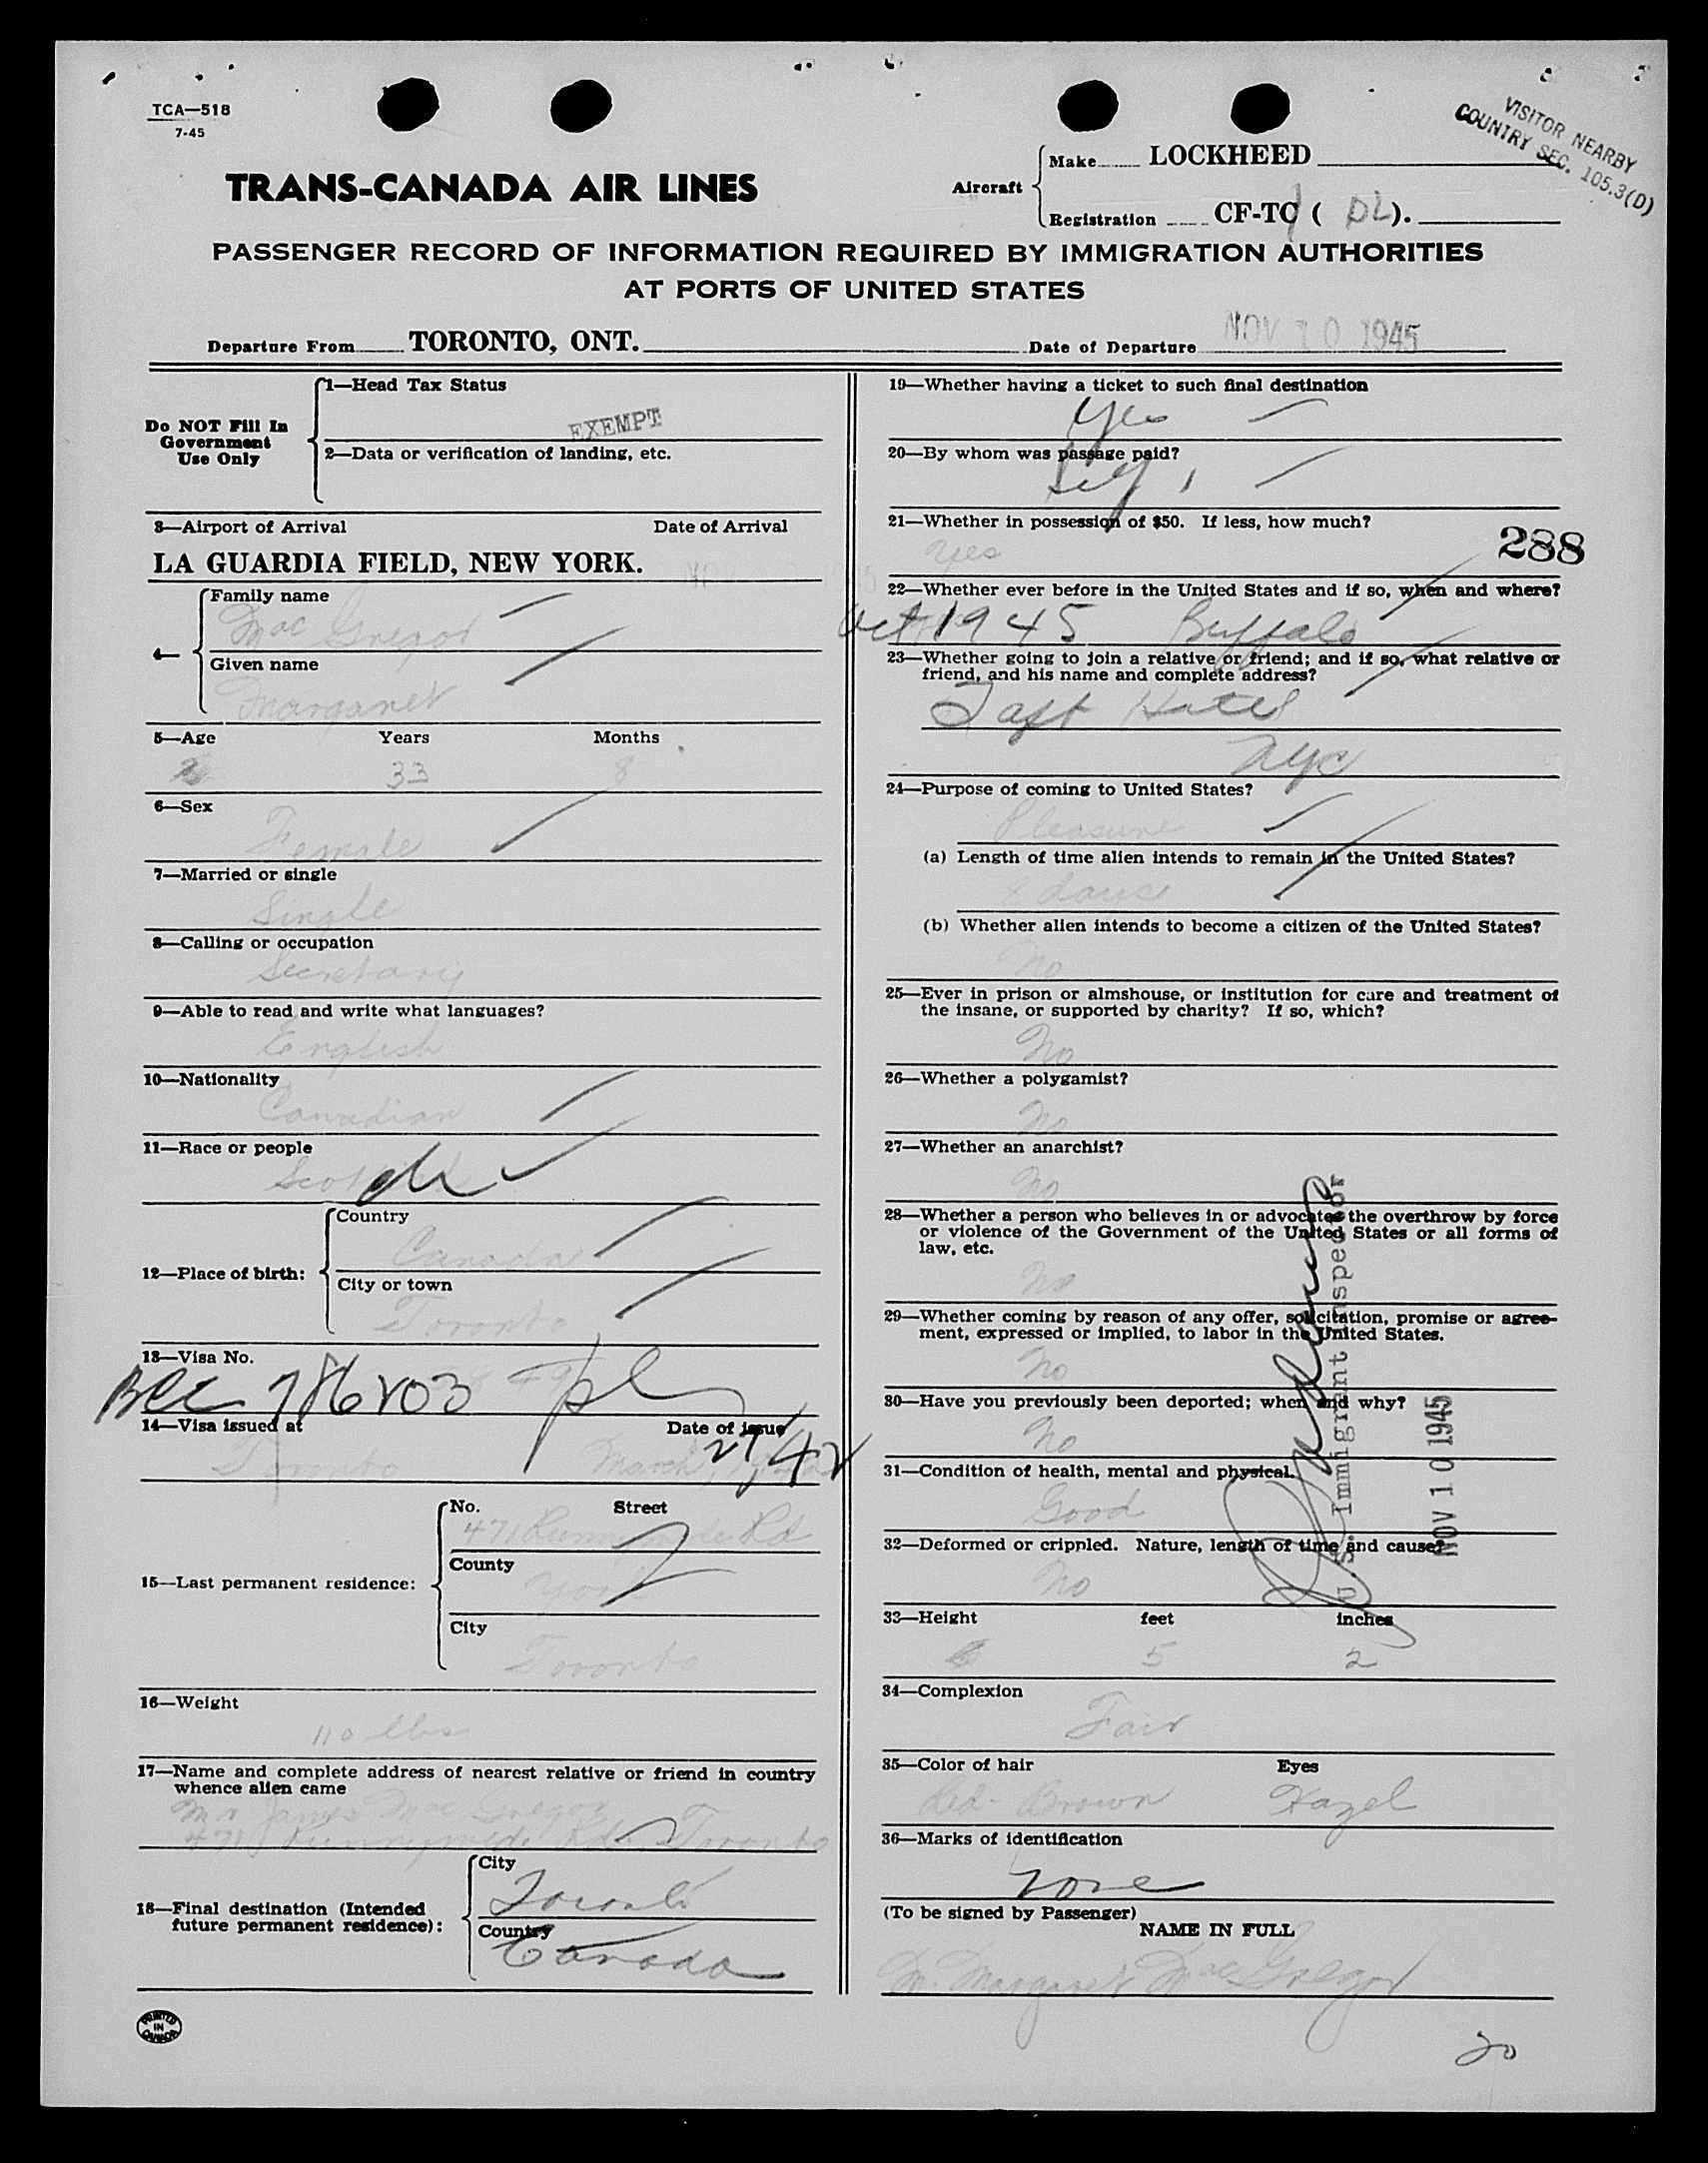 TCA—518
7-45
VISITOR NEARBY
COUNTRY SEC. 105.3(D)
TRANS-CANADA AIR LINES
Aircraft
Make LOCKHEED
Registration CF-TC ( DL ).
PASSENGER RECORD OF INFORMATION REQUIRED BY IMMIGRATION AUTHORITIES
AT PORTS OF UNITED STATES
Departure From TORONTO, ONT. Date of Departure NOV 10 1945
Do NOT Fill In
Government
Use Only
1—Head Tax Status
EXEMPT
2—Data or verification of landing, etc.
3—Airport of Arrival Date of Arrival
LA GUARDIA FIELD, NEW YORK.
4—
Family name
Mac Gregor
Given name
Margaret
5—Age Years Months
33 8
6—Sex
Female
7—Married or single
Single
8—Calling or occupation
Secretary
9—Able to read and write what languages?
English
10—Nationality
Canadian
11—Race or people
Scotch
12—Place of birth:
Country
Canada
City or town
Toronto
13—Visa No.
BCC 786203
14—Visa issued at Date of issue
Toronto March 27/42
15—Last permanent residence:
No. Street
471 Runnymede Rd
County
York
City
Toronto
16—Weight
110 lbs
17—Name and complete address of nearest relative or friend in country
whence alien came
Mr James Mac Gregor
471 Runnymede Rd. Toronto
18—Final destination (Intended
future permanent residence):
City
Toronto
Country
Canada
PRINTED
IN
CANADA
19—Whether having a ticket to such final destination
Yes
20—By whom was passage paid?
Self
21—Whether in possession of $50. If less, how much?
Yes
288
22—Whether ever before in the United States and if so, when and where?
Oct 1945 Buffalo
23—Whether going to join a relative or friend; and if so, what relative or
friend, and his name and complete address?
Taft Hotel
NYC
24—Purpose of coming to United States?
Pleasure
(a) Length of time alien intends to remain in the United States?
8 days
(b) Whether alien intends to become a citizen of the United States?
No
25—Ever in prison or almshouse, or institution for care and treatment of
the insane, or supported by charity? If so, which?
No
26—Whether a polygamist?
No
27—Whether an anarchist?
No
28—Whether a person who believes in or advocates the overthrow by force
or violence of the Government of the United States or all forms of
law, etc.
No
29—Whether coming by reason of any offer, solicitation, promise or agree-
ment, expressed or implied, to labor in the United States.
No
30—Have you previously been deported; when and why?
No
31—Condition of health, mental and physical.
Good
32—Deformed or crippled. Nature, length of time and cause?
No
U.S. Immigrant Inspector
NOV 10 1945
33—Height feet inches
5 2
34—Complexion
Fair
35—Color of hair Eyes
Red-Brown Hazel
36—Marks of identification
none
(To be signed by Passenger)
NAME IN FULL
M. Margaret Mac Gregor
20